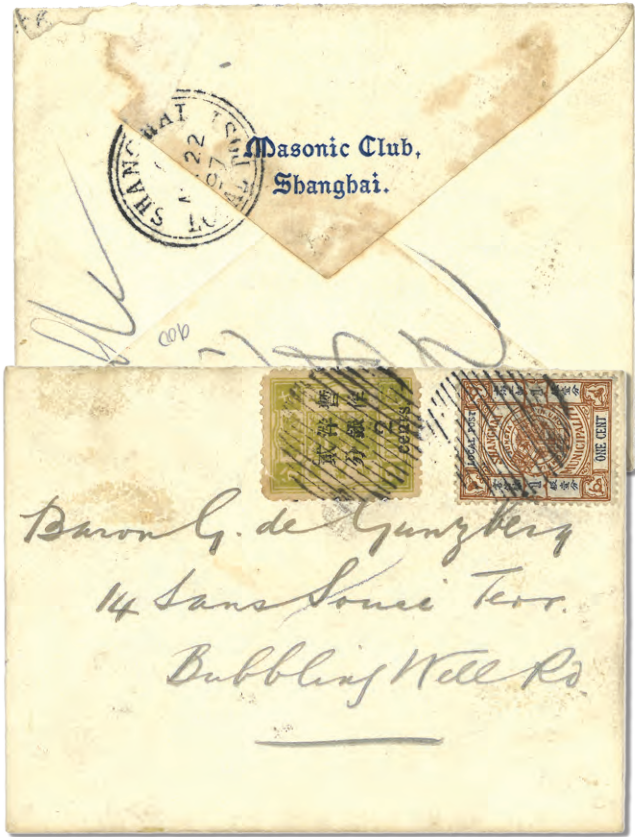 SHANGHAI LOCAL POST
22
97
Masonic Club,
Shanghai.
900
暫作
洋銀
貳分
2
cents
LOCAL POST
SHANGHAI MUNICIPALITY
ONE CENT
Baron G. de Gunzberg
14 Sans Souci Terr.
Bubbling Well Rd